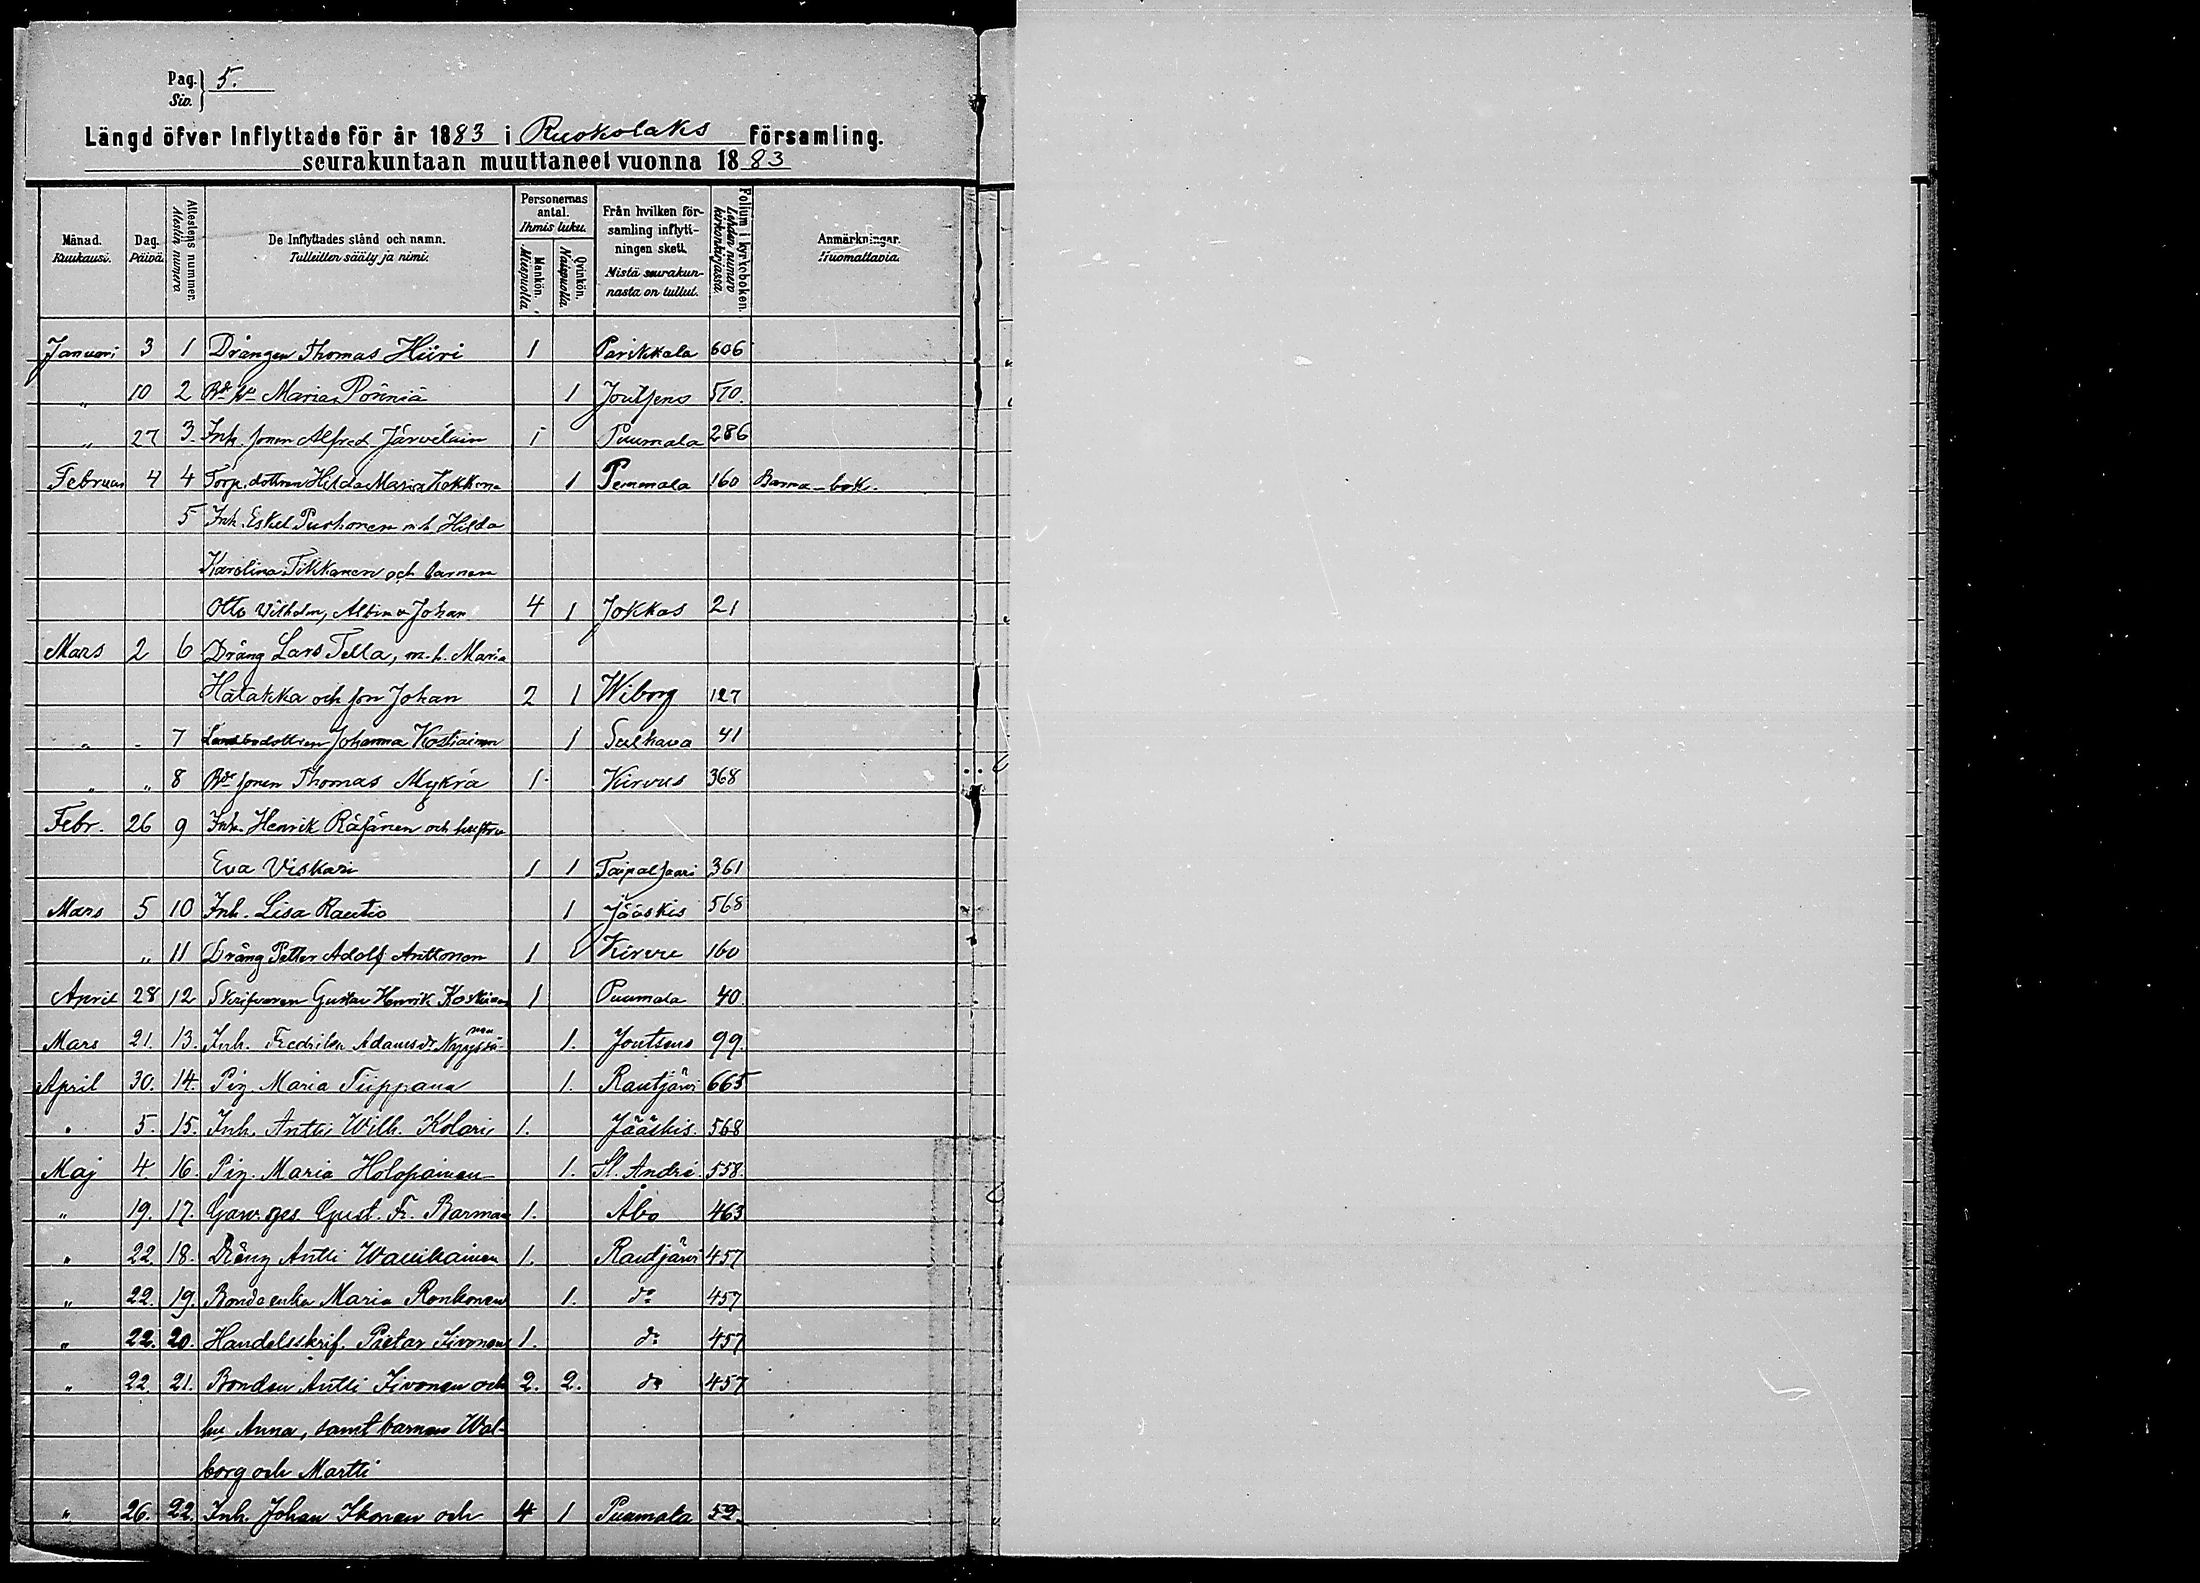 Pag. 5.
Siv.
Längd öfver Inflyttade för år 1883 i Ruokolaks församling.
seurakuntaan muuttaneet vuonna 1883
Månad. Kuukausi. Dag. Päivä. Attestens nummer. Atestin numero De Inflyttades stånd och namn. Tulleitten sääty ja nimi. Personernas antal. Ihmis luku. Mankön. Miespuolia Qvinkön. Naispuolia Från hvilken församling inflyttningen skett. Mistä seurakunnasta on tullut. Folium i kyrkoboken. Lehden numero kirkonkirjassa Anmärkningar. Huomattavia.
Januari 3 1 Drängen Thomas Hiiri 1 Parikkala 606
„ 10 2 Maria Pönniä 1 Joutseno 570.
„ 27 3. Inh. sonen Alfred Järveläin 1 Puumala 286
Februari 4 4 Torp. dottren Hilda Maria Kokkon 1 Pummala 160 Barna-bok.
5 Inh. Eskel Purhonen m. h. Hilda
Karolina Tikkanen och barnen
Otto Vilhelm, Albin o Johan 4 1 Jokkas 21
Mars 2 6 Dräng Lars Tella, m. h. Maria
Hatakka och son Johan 2 1 Wiborg 127
„ - 7 Landbodottren Johanna Kostiainen 1 Sulkava 41
„ „ 8 Bde sonen Thomas Mykrä 1. Kirvus 368
Febr. 26 9 Inh. Henrik Räsänen och hustru
Eva Viskari 1 1 Taipalsaari 361
Mars 5 10 Inh. Lisa Rautio 1 Jääskis 568
„ 11 Dräng Petter Adolf Anttonen 1 Kirvu 160
April 28 12 Skrifvaren Gustav Henrik Koskinen 1 Puumala 40.
Mars 21. 13. Inh. Fredrika Adamsdr Nyyssönen 1. Joutseno 99.
April 30. 14. Pig. Maria Tiippana 1. Rautjärvi 665
„ 5. 15. Inh. Antti Wilh. Kolari 1. Jääskis. 568
Maj 4. 16. Pig. Maria Holopainen 1. St. Andrè. 558.
„ 19. 17. Garv. ges. Gust. Fr. Barman 1. Åbo 463
„ 22. 18. Dräng Antti Wauhkainen 1. Rautjärvi 457
„ 22. 19. Bondeenka Maria Ronkonen 1. do 457
„ 22. 20. Handelsskrif. Pietar Iivonen 1. do 457
„ 22. 21. Bonden Antti Iivonen och 2. 2. do 457
hu Anna, samt barnen Wal-
borg och Martti
„ 26. 22. Inh. Johan Ikonen och 4 1 Puumala 52.